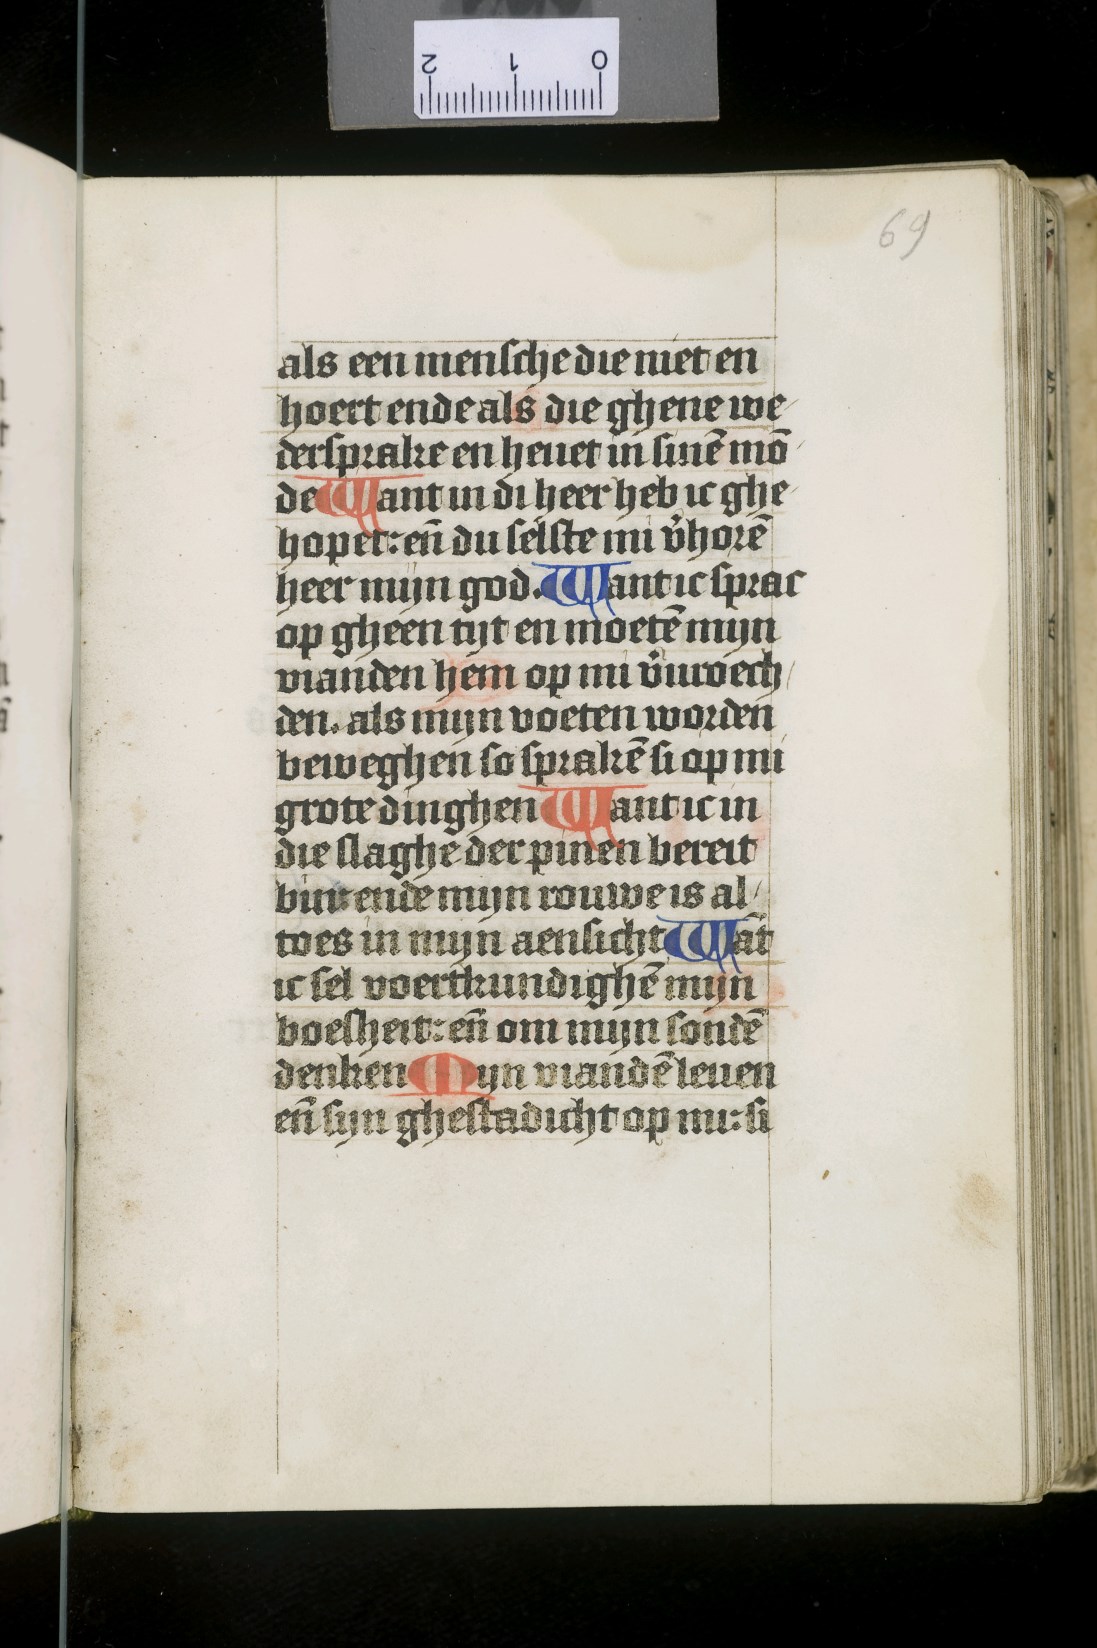 69
als een mensche die niet en
hoert ende als die ghene we
dersprake en heuet in sinē mō
de Want in di heer heb ic ghe
hopet: eñ du selste mi v̄horē
heer mijn god. Want ic sprac
op gheen tijt en moetē mijn
vianden hem op mi v̄uroech
den. als mijn voeten worden
beweghen so sprakē si op mi
grote dinghen Want ic in
die slaghe der pinen bereit
bin ende mijn rouwe is al
toes in mijn aensicht Wāt
ic sel voertkundighē mijn
boesheit: eñ om mijn sondē
denken Mijn viandē leuen
eñ sijn ghestadicht op mi: si